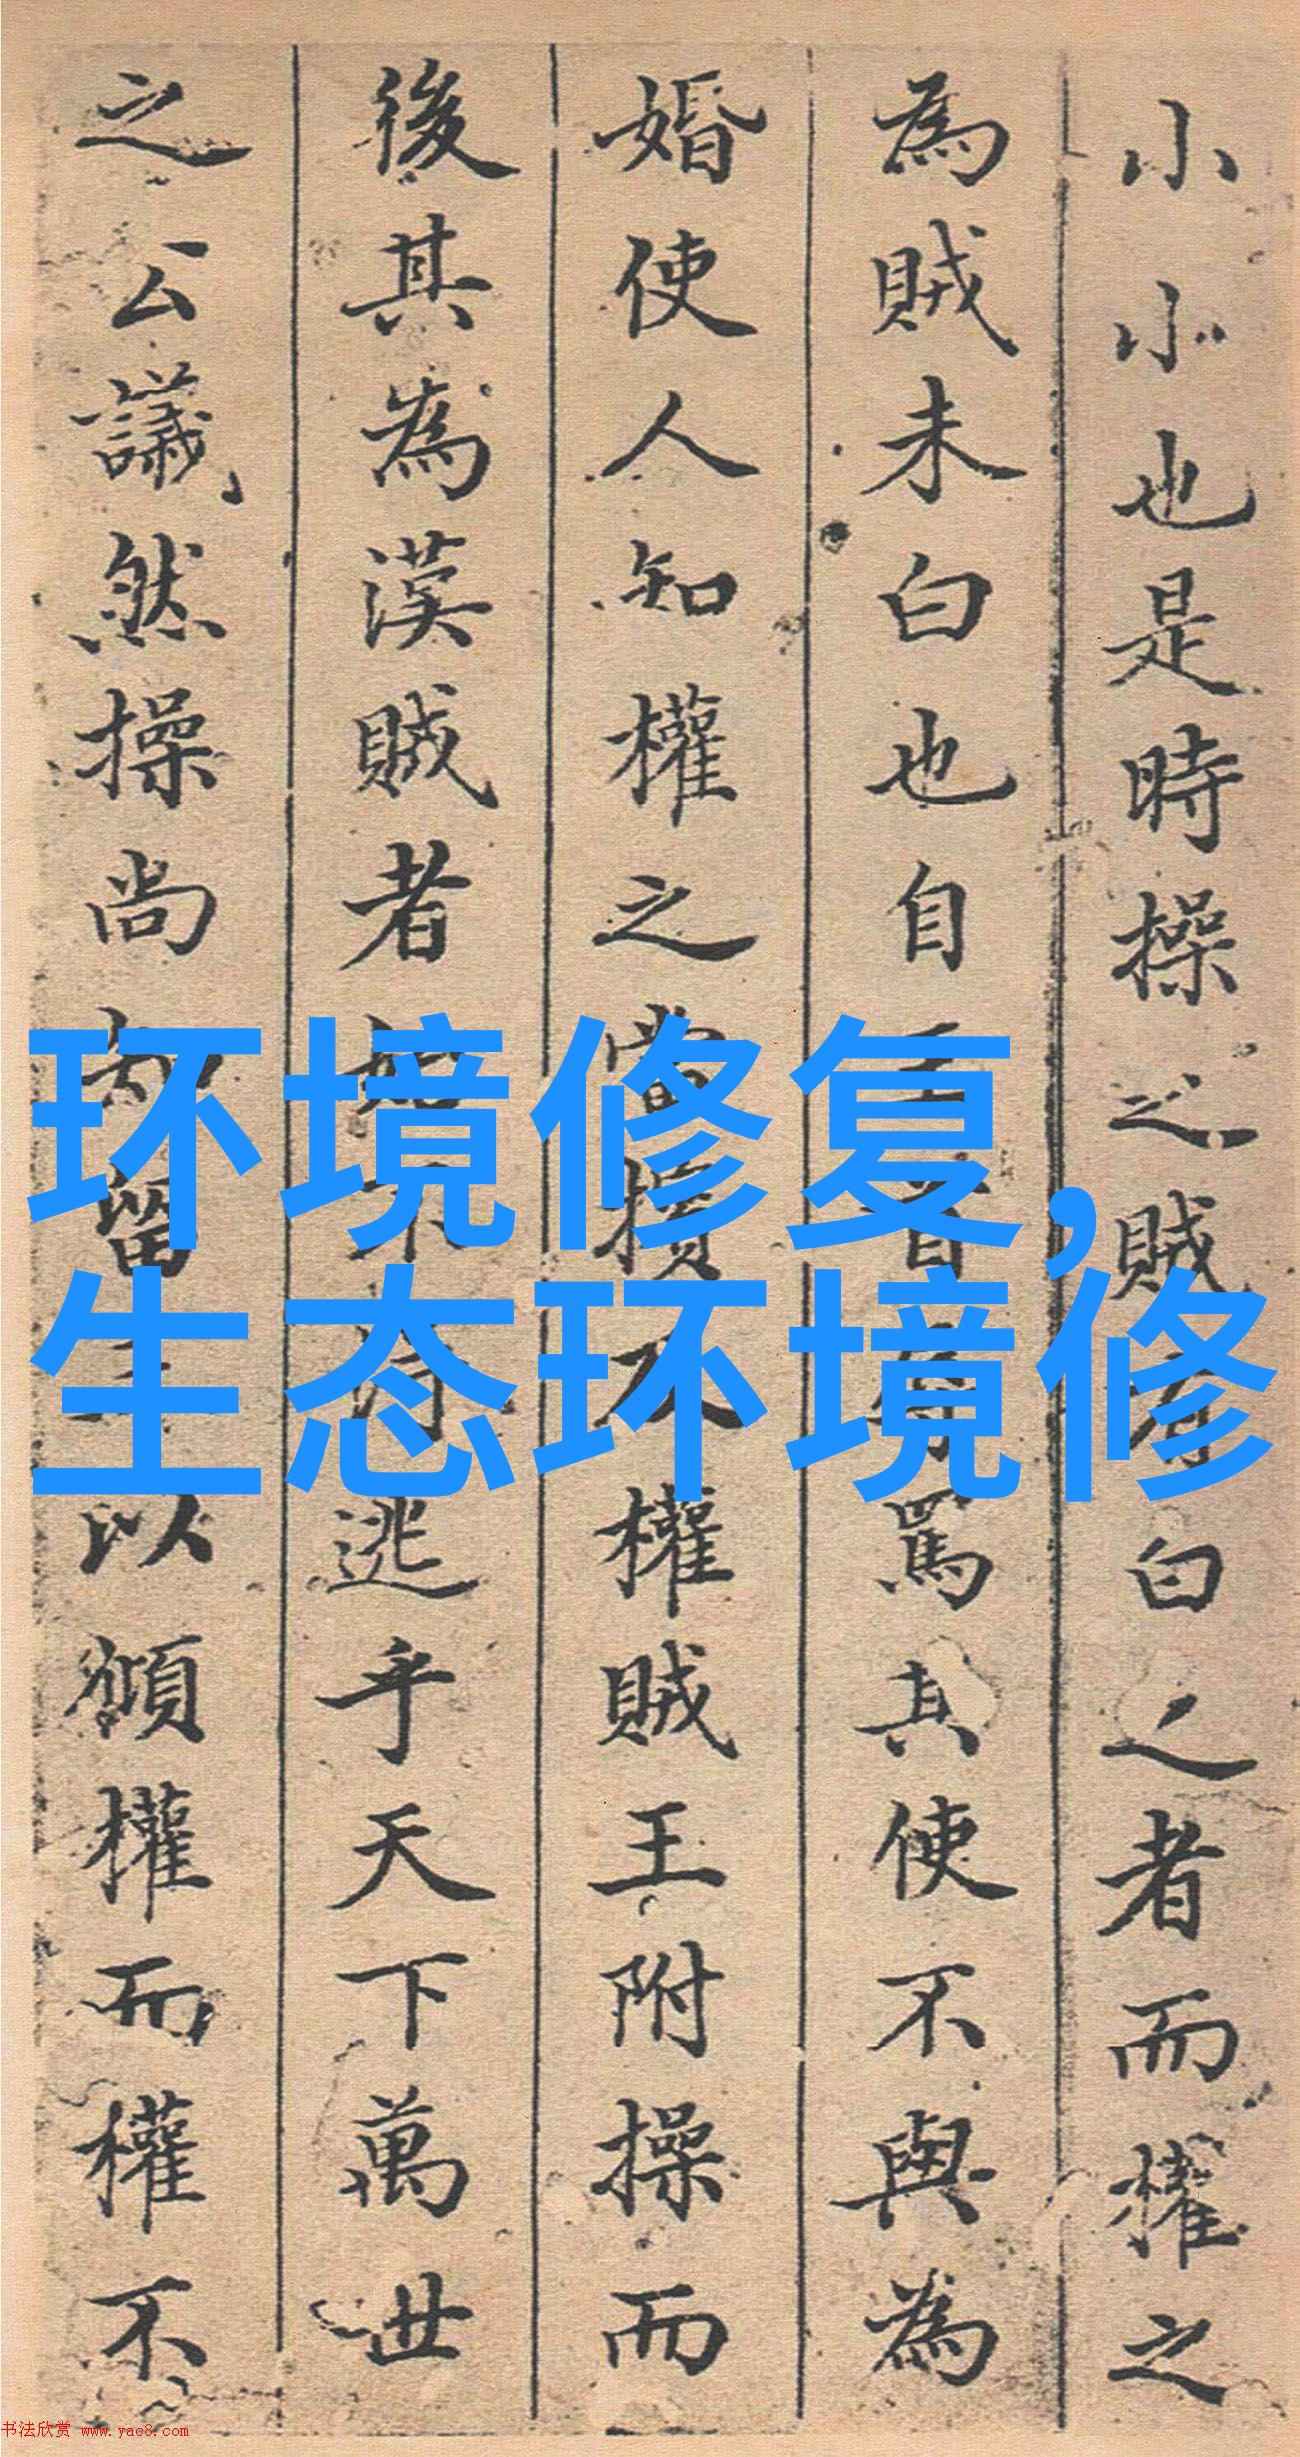 小小也是時操之賊白之者而權之
為賊未白也自罵其使不與為
婚使人知權之當權賊王附操而
後其為漢賊者逃乎天下萬世
之公議然操尚留以權而權不
环境修复,
生态环境修
书法欣赏 www.yac8.com